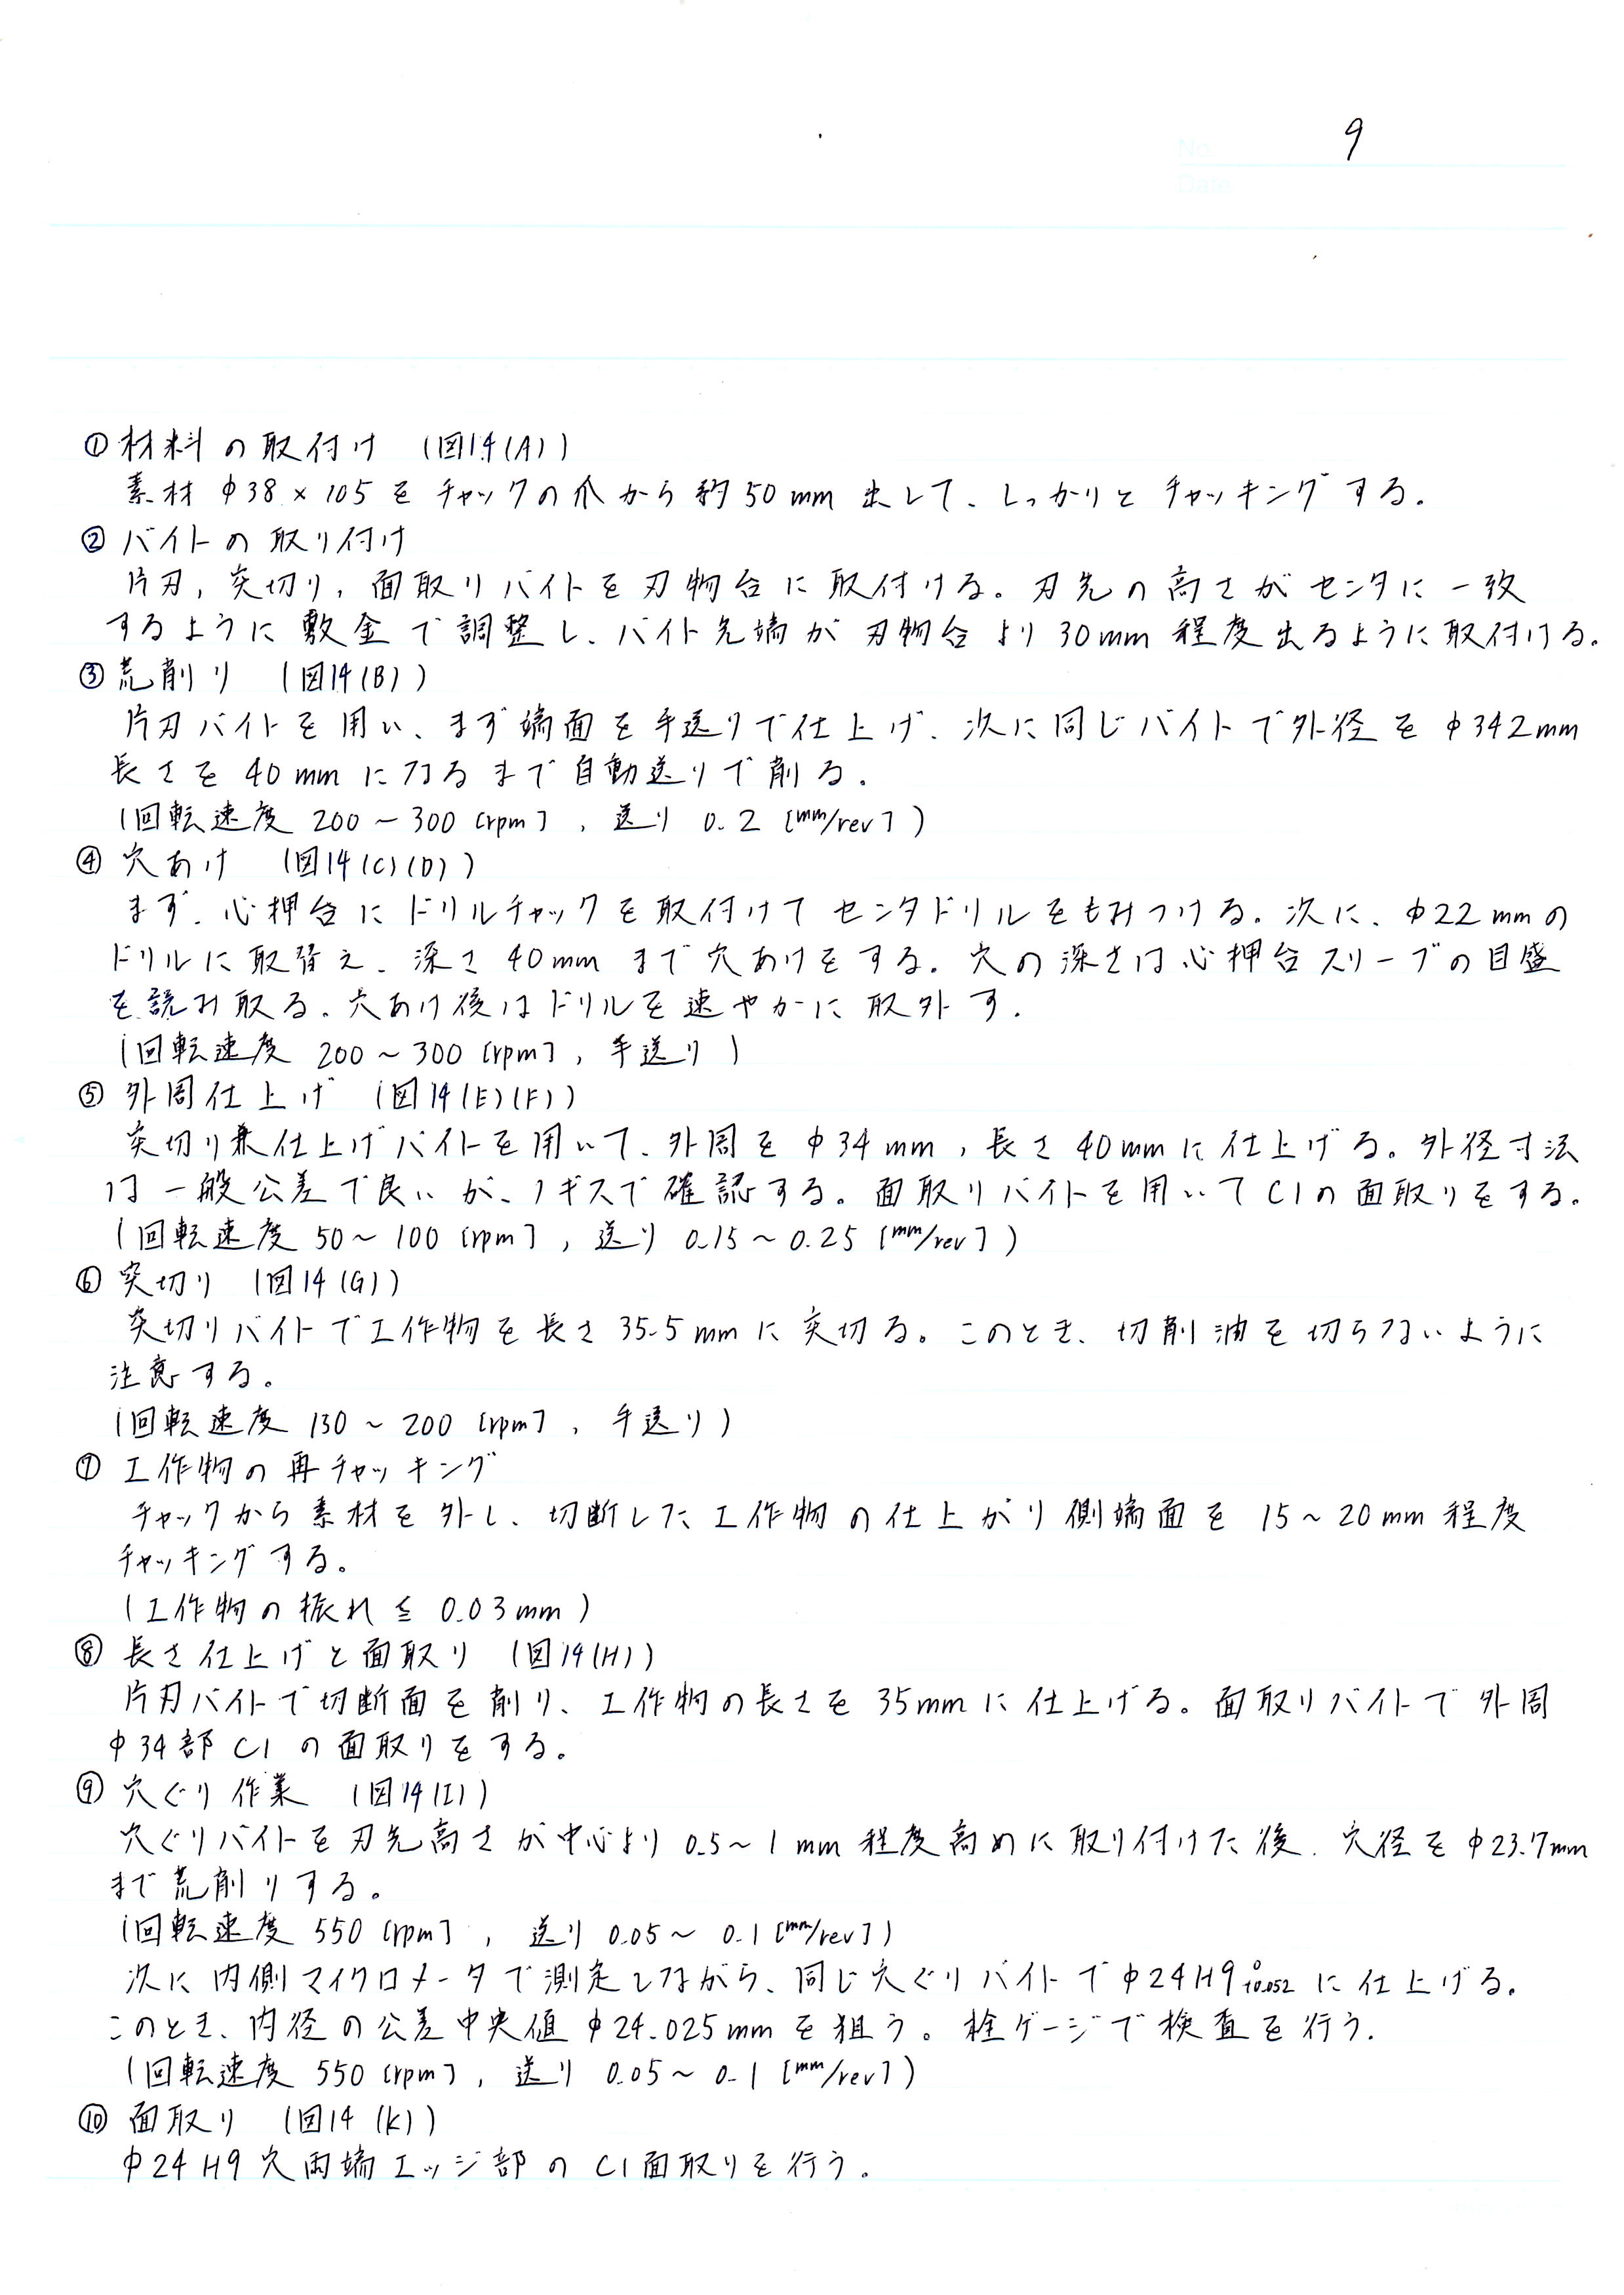 No. 9
Date
①材料の取付け (図14(A))
素材 φ38×105をチャックの爪から約50mm出して、しっかりとチャッキングする。
②バイトの取り付け
片刃,突切り,面取りバイトを刃物台に取付ける。刃先の高さがセンタに一致
するように敷金で調整し、バイト先端が刃物台より30mm程度出るように取付ける。
③荒削り (図14(B))
片刃バイトを用い、まず端面を手送りで仕上げ、次に同じバイトで外径をφ342mm
長さを40mmになるまで自動送りで削る。
(回転速度 200~300[rpm], 送り 0.2[mm/rev])
④穴あけ (図14(C)(D))
まず、心押台にドリルチャックを取付けてセンタドリルをもみつける。次に、φ22mmの
ドリルに取替え、深さ40mmまで穴あけをする。穴の深さは心押台スリーブの目盛
を読み取る。穴あけ後はドリルを速やかに取外す。
(回転速度 200~300[rpm], 手送り)
⑤外周仕上げ (図14(E)(F))
突切り兼仕上げバイトを用いて、外周をφ34mm,長さ40mmに仕上げる。外径寸法
は一般公差で良いが、ノギスで確認する。面取りバイトを用いてC1の面取りをする。
(回転速度 50~100[rpm], 送り 0.15~0.25[mm/rev])
⑥突切り (図14(G))
突切りバイトで工作物を長さ35.5mmに突切る。このとき、切削油を切らないように
注意する。
(回転速度 130~200[rpm], 手送り)
⑦工作物の再チャッキング
チャックから素材を外し、切断した工作物の仕上がり側端面を15~20mm程度
チャッキングする。
(工作物の振れ≦0.03mm)
⑧長さ仕上げと面取り (図14(H))
片刃バイトで切断面を削り、工作物の長さを35mmに仕上げる。面取りバイトで外周
φ34部C1の面取りをする。
⑨穴ぐり作業 (図14(I))
穴ぐりバイトを刃先高さが中心より0.5~1mm程度高めに取り付けた後、穴径をφ23.7mm
まで荒削りする。
(回転速度 550[rpm], 送り 0.05~0.1[mm/rev])
次に内側マイクロメータで測定しながら、同じ穴ぐりバイトでφ24H9 0 +0.052 に仕上げる。
このとき、内径の公差中央値φ24.025mmを狙う。栓ゲージで検査を行う.
(回転速度 550[rpm], 送り 0.05~0.1[mm/rev])
⑩面取り (図14(K))
φ24H9穴両端エッジ部のC1面取りを行う。